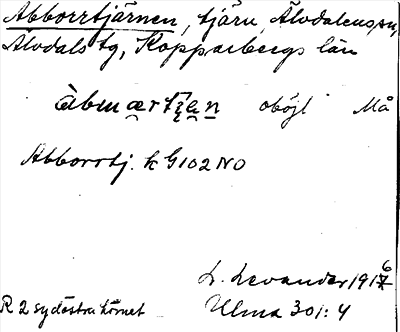 Abborrtjärnen, tjärn, Älvdalens sn,
Älvdals tg, Kopparbergs län
àbmærtțẹṇ oböjl Må
Abborrtj. k G102 NO
L. Levander 1916
R 2 sydöstra hörnet Ulma 301:4